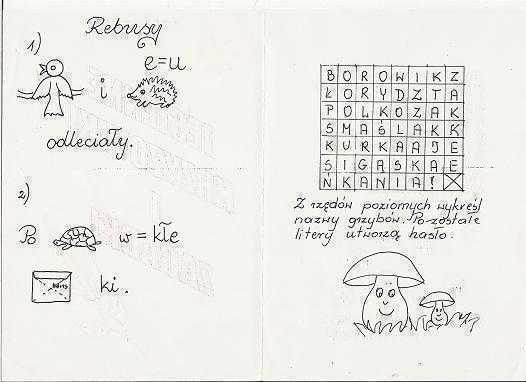 Rebusy
1)
e=u
i
odleciały.
2)
Po
w = kłe
ki.
B O R O W I K Z
Ł O R Y D Z T A
P O L K O Z A K
S M A Ś L A K K
K U R K A A J E
S I G Ą S K A E
Ń K A N I A !
Z rzędów poziomych wykreśl
nazwy grzybów. Pozostałe
litery utworzą hasło.